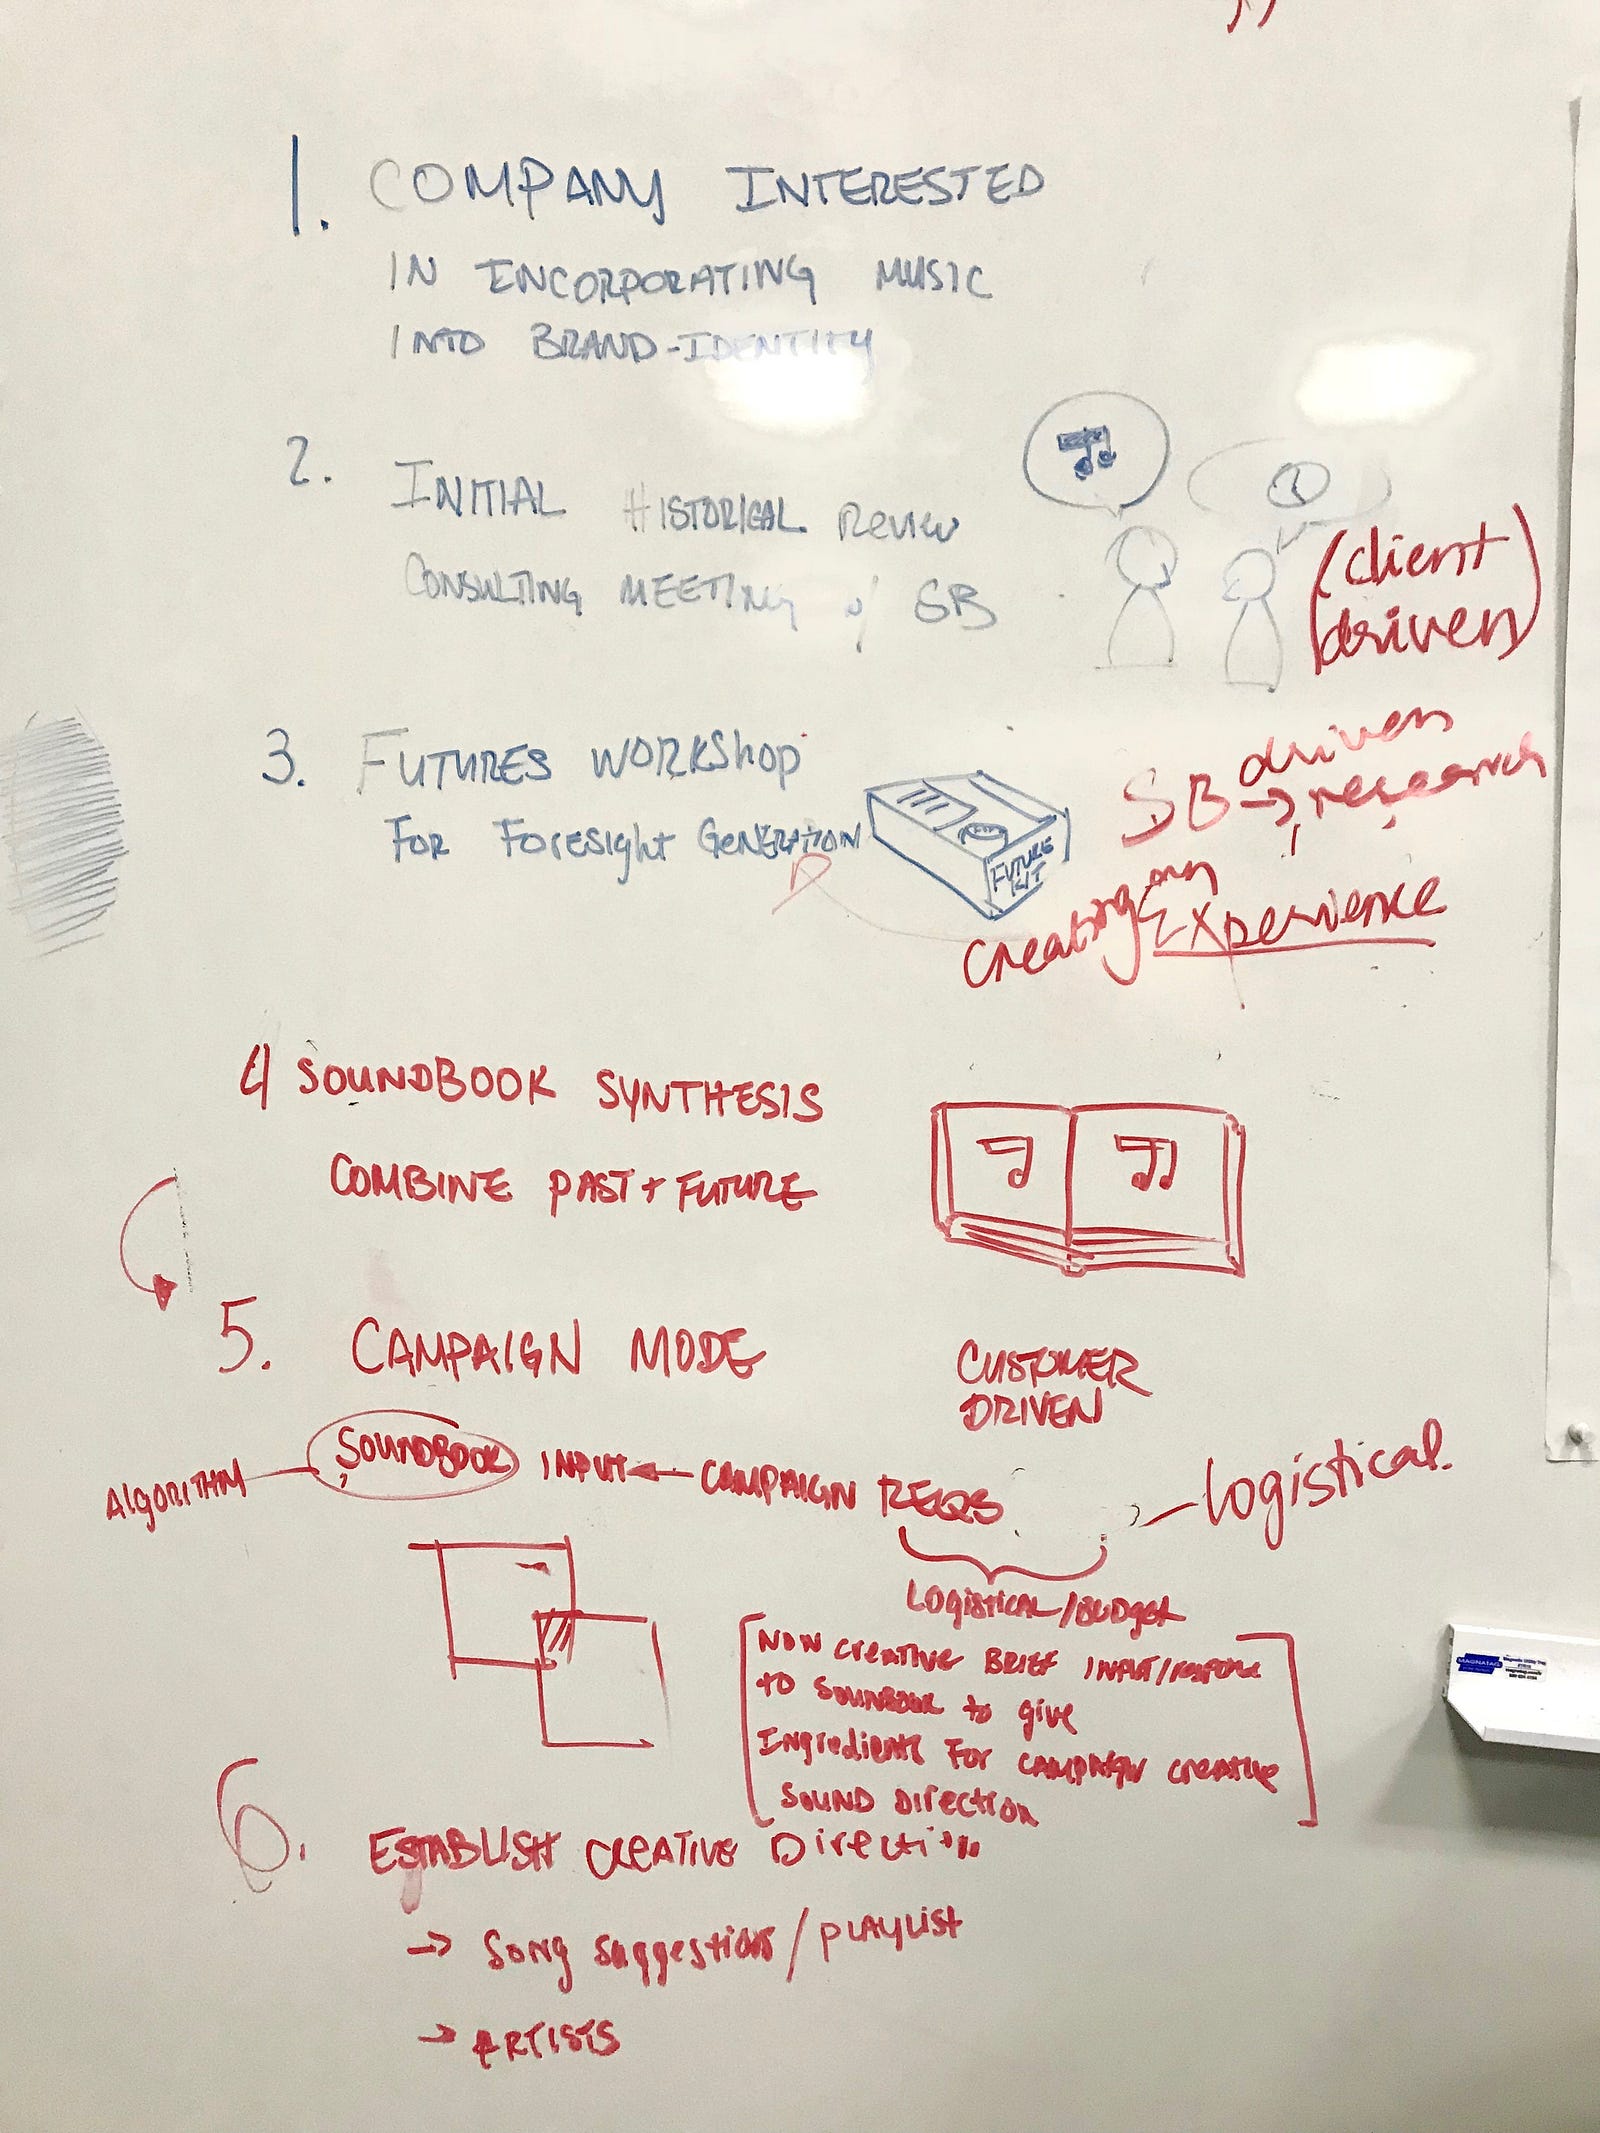 1. COMPANY INTERESTED
IN INCORPORATING MUSIC
INTO BRAND-IDENTITY
2. INITIAL HISTORICAL REVIEW
CONSULTING MEETING w/ SB
(client
driven)
3. FUTURES WORKSHOP
FOR FORESIGHT GENERATION
FUTURE
KIT
SB driven
→ research
creating an
EXPERIENCE
4 SOUNDBOOK SYNTHESIS
COMBINE PAST + FUTURE
5. CAMPAIGN MODE
CUSTOMER
DRIVEN
ALGORITHM — SOUNDBOOK INPUT ← CAMPAIGN REQS — Logistical.
LOGISTICAL/BUDGET
CREATIVE BRIEF INPUT/
TO SOUNDBOOK TO GIVE
INGREDIENTS FOR CAMPAIGN CREATIVE
SOUND DIRECTION
6. ESTABLISH CREATIVE DIRECTION
→ SONG SUGGESTIONS / PLAYLIST
→ ARTISTS
MAGNATAG